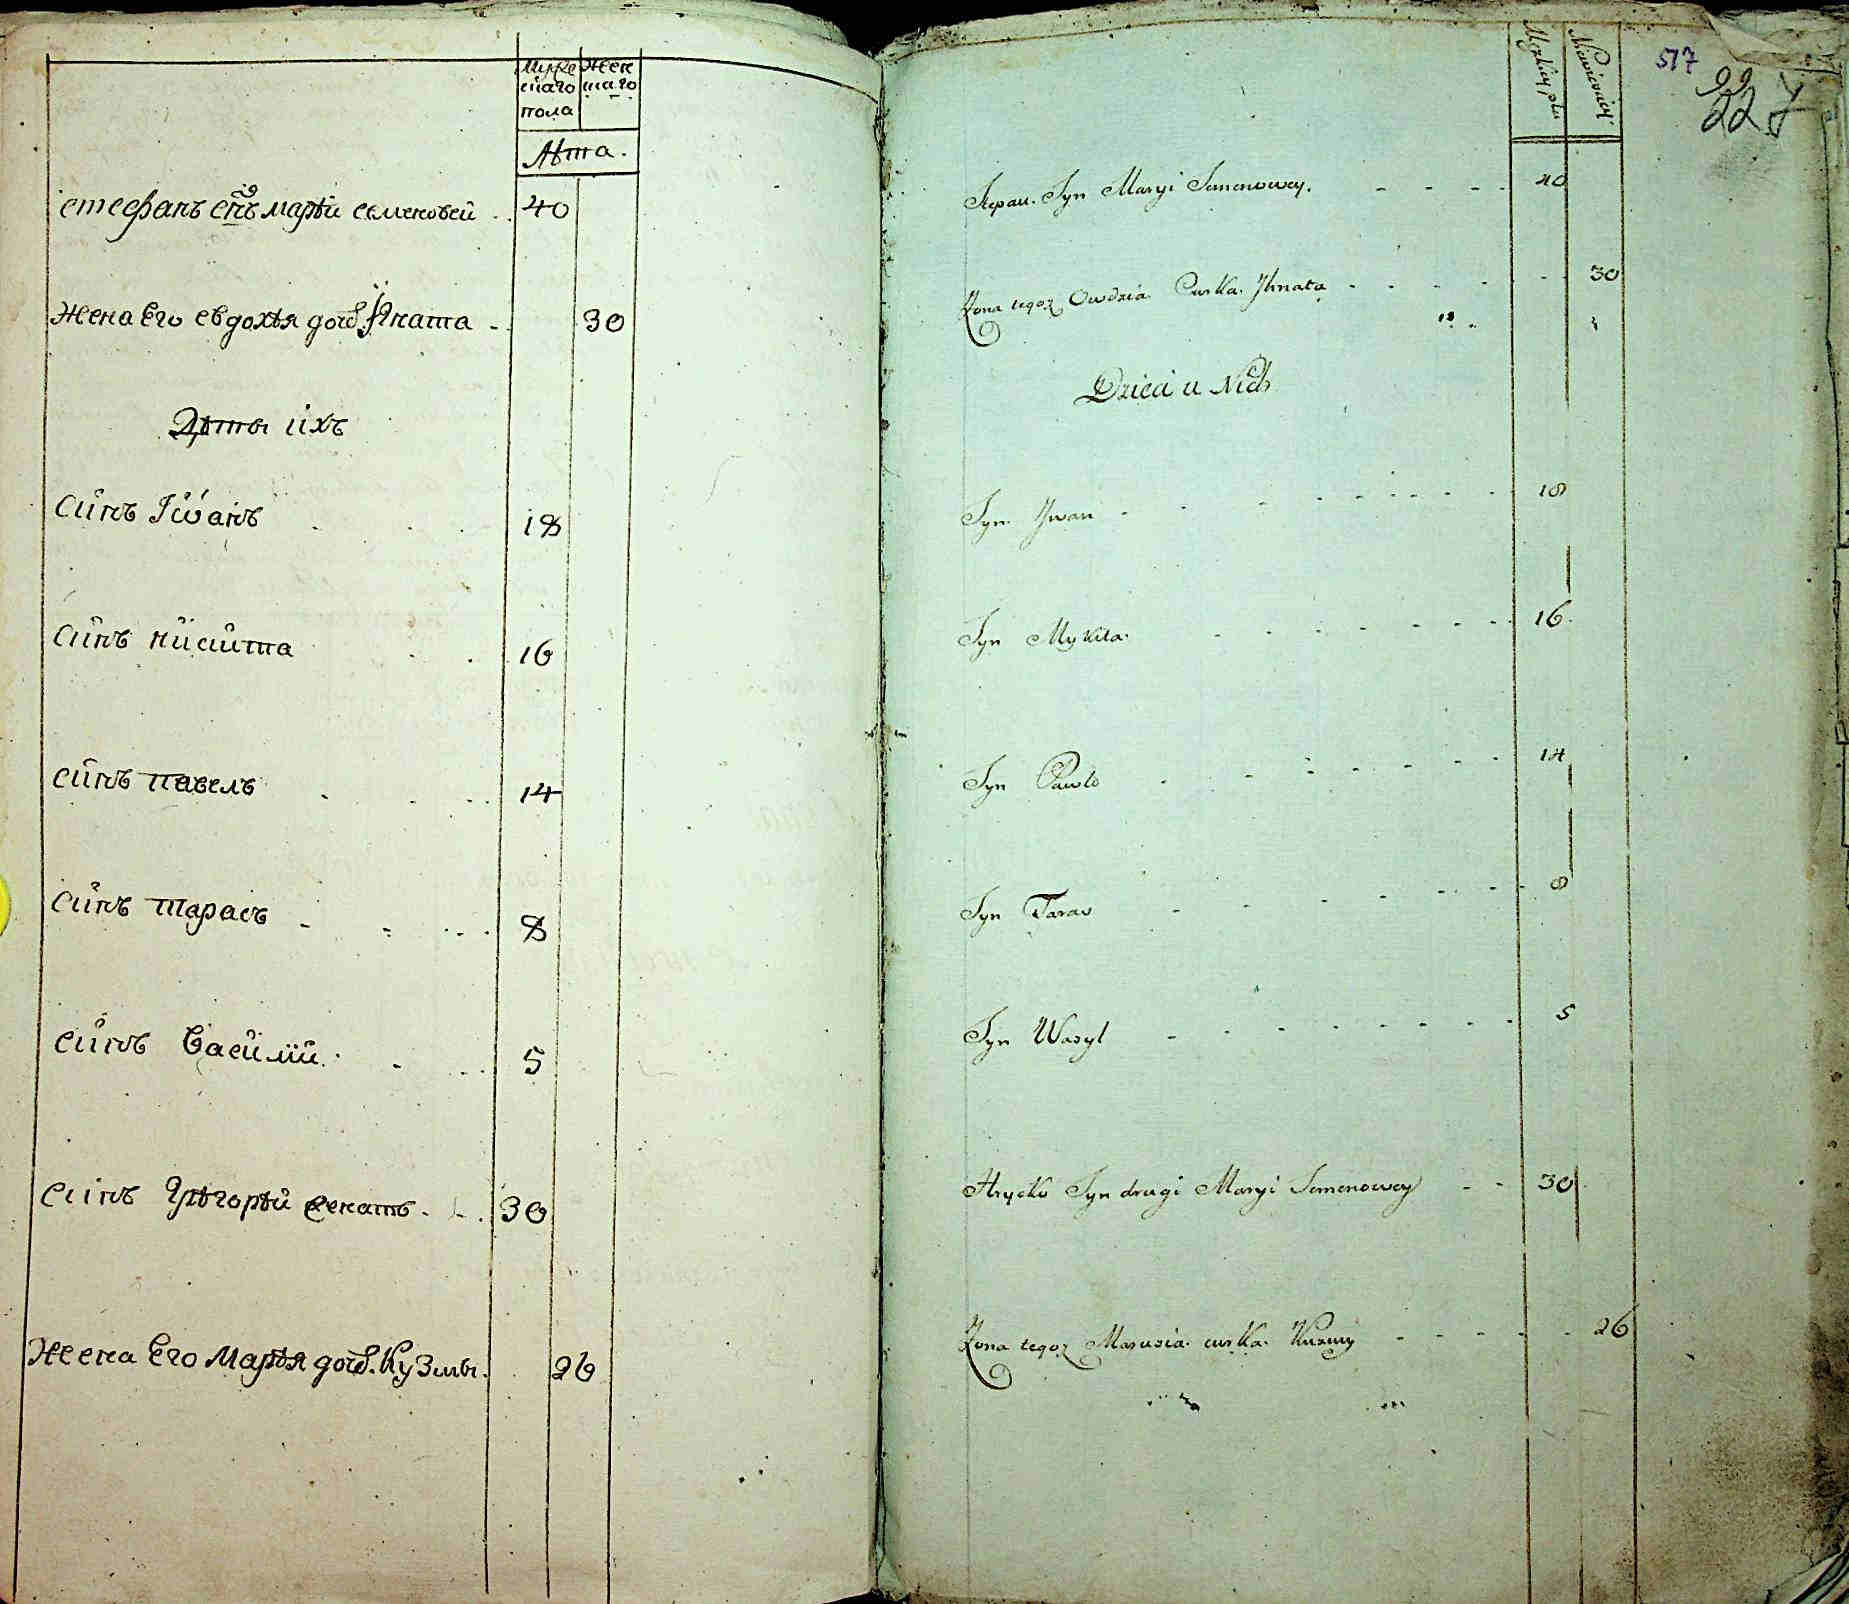 Мужескаго пола
Женскаго
Лѣта.
стефанъ сн͠ъ марѣи семеновей 40
жена его евдохѣя дочь Игната 30
Дѣты ихъ
Синъ Iванъ 18
Синъ никита 16
синъ павелъ 14
синъ тарасъ 8
синъ Василий 5
синъ Грѣгорѣй женатъ 30
жена его Марѣя дочь Кузмы 26
Męzkiey płci
Niewieściey
517
99
227
Stepan Syn Maryi Semenowey. 40
Żona tegoż Owdzia Curka Ihnata 30
Dzieci u Nich
Syn Iwan 18
Syn Mykita 16
Syn Pawlo 14
Syn Taras 8
Syn Wasyl 5
Hryćko Syn drugi Maryi Semenowey 30
Żona tegoż Marusia curka Kuzmy 26